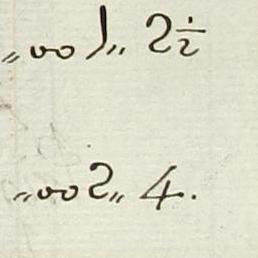 „oo1„ 2½
„oo2„ 4.